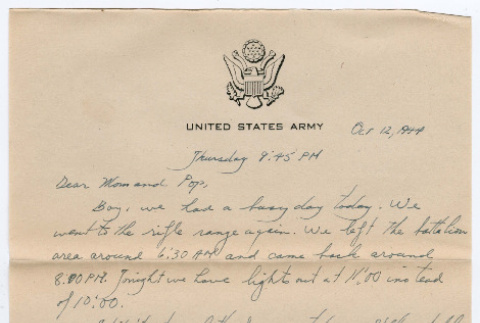 UNITED STATES ARMY
Oct 12, 1944
Thursday 9:45 PM
Dear Mom and Pop,
Boy, we had a busy day today. We
went to the rifle range again. We left the battalion
area around 6:30 AM and came back around
8:00 PM. Tonight we have lights out at 11:00 instead
of 10:00.